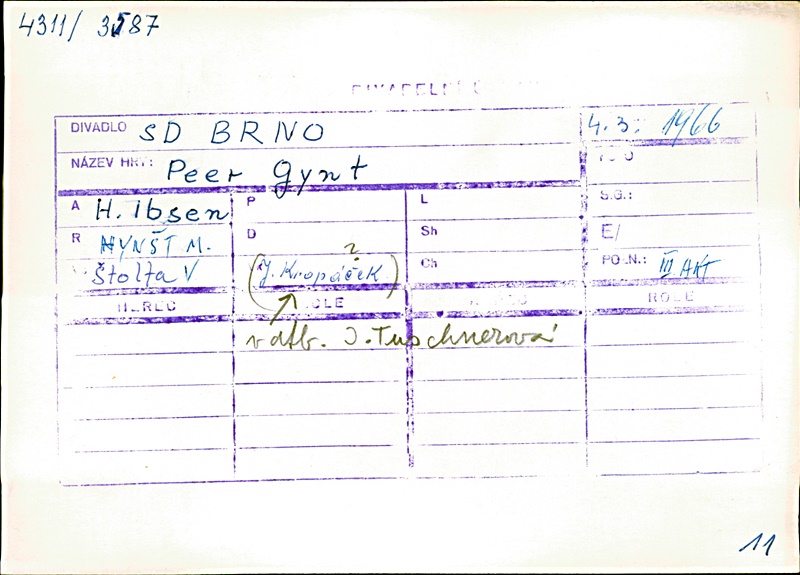 4311/ 3587
DIVADELNÍ
DIVADLO SD BRNO 4.3. 1966
NÁZEV HRY: Peer Gynt
A H. Ibsen P L S.G.:
R HYNŠT M. D Sh E/
Štolta V (J. Kropáček ?) Ch PO.N.: III. AKT
HEREC ROLE HEREC ROLE
v datb. J. Tuschnerová
11